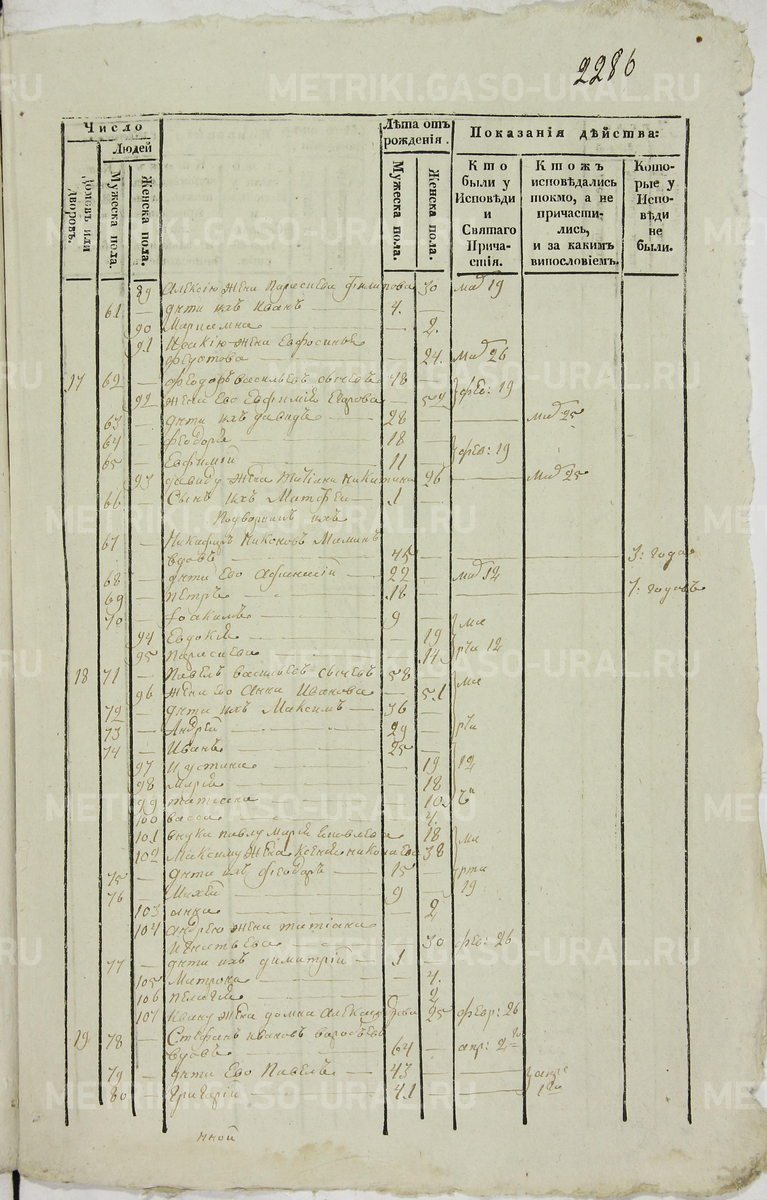 2286
Число
Людей
Домовъ или дворовъ.
Мужеска пола.
Женска пола.
Лѣта отъ рожденія.
Мужеска пола.
Женска пола.
Показанія дѣйства:
Кто были у Исповѣди и Святаго Причастія.
Ктожъ исповѣдались токмо, а не причастились, и за какимъ винословіемъ.
Которые у Исповѣди не были.
89 Алексію жена Параскева Филипова 30 мар 19
61 — дѣти ихъ Иванъ 4.
90 Мариамна 2.
91 жена Евфросинья
24. мар 26
17 62 — Феодоръ Васильевъ Сычевъ 48 фев: 19
92 жена Ево Евфимія Егарова 54
63 — дѣти ихъ Давидъ 28 мар 25
64 — Феодоръ 18 фев: 19
65 — Евфимій 11
93 Давиду жена Татіана Никитина 26 мар 25
66 — Сынъ ихъ Матфей 1
Подворникъ ихъ
67 — Никифоръ Никоновъ Маминъ
вдовъ 45 3: года
68 — дѣти Ево Афанасій 22 мар 12
69 — Петръ 18 7: годовъ
70 — Іоакимъ 9 ма
94 Евдокія 19
95 Параскева 14 рта 12
18 71 — Павелъ Васильевъ Сычевъ 58 ма
96 жена Ево Анна Иванова 51
72 — дѣти ихъ Максимъ 36
73 — Андрей 29 рта
74 — Иванъ 25
97 Иустина 19 12
98 Марія 18
99 Татіана 10
100 Васса 4.
101 внука Павлу Марія 18 ма
102 Максиму жена Ксенія Николаева 38
75 — дѣти ихъ Феодоръ 15 рта
76 Михей 9 19
103 Анна 2
104 Андрею жена Татіана
Игнатьева 30 фев: 26
77 — дѣти ихъ Димитрій 1
105 Матрона 4.
106 Пелагія 2
107 Ивану жена Домна Александрова 25 февр: 26
19 78 — Стефанъ Ивановъ
вдовъ 64 апр: 2
79 — дѣти Ево Павелъ 43 апр
80 — Григорій 41
нной
METRIKI.GASO-URAL.RU